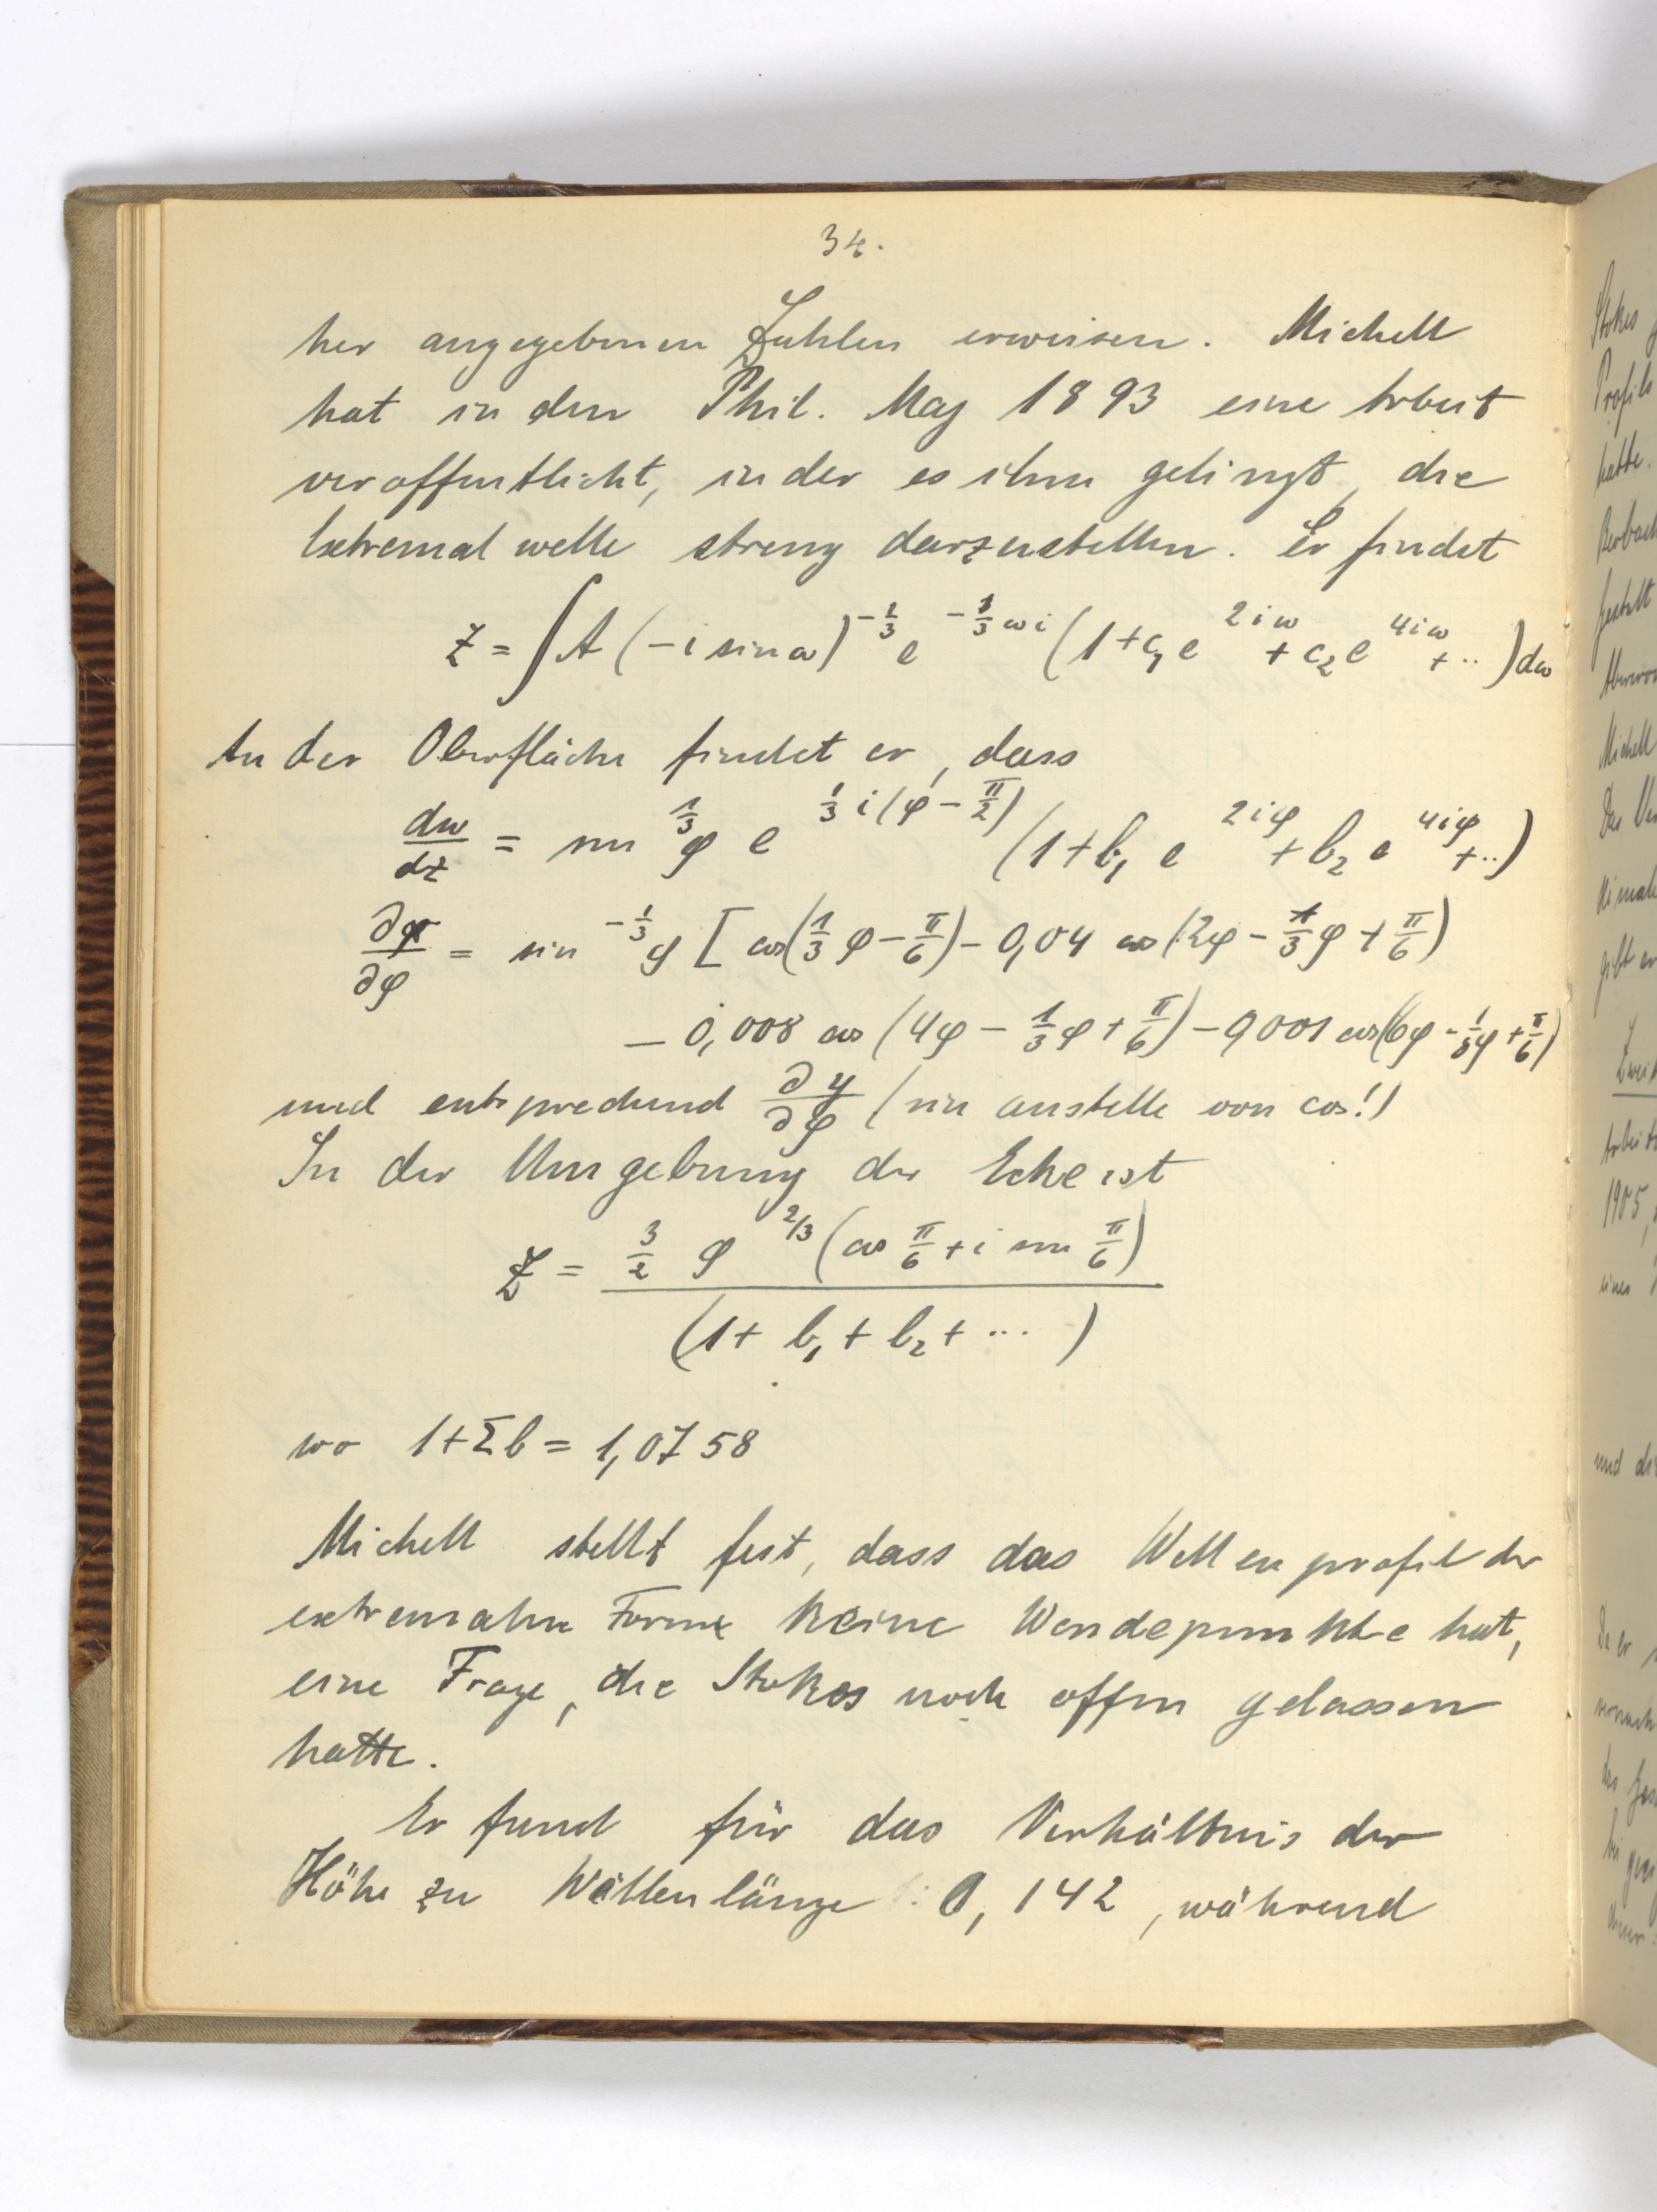 34.
her angegebenen Zahlen erweisen. Michell
hat in den Phil. Mag 1893 eine Arbeit
veroffentlicht, in der es ihm gelingt, die
Extremalwelle streng darzustellen. Er findet
z = ∫ A (-i sin ω)^{-1/3} e^{-1/3 ωi} (1 + c₁ e^{2iω} + c₂ e^{4iω} + ..) dω
An der Oberfläche findet er, dass
dw/dz = sin^{1/3} φ e^{1/3 i(φ - π/2)} (1 + b₁ e^{2iφ} + b₂ e^{4iφ} + ..)
∂x/∂φ = sin^{-1/3} φ [cos(1/3 φ - π/6) - 0,04 cos (2φ - 1/3 φ + π/6)
- 0,008 cos (4φ - 1/3 φ + π/6) - 0,001 cos(6φ - 1/3 φ + π/6)
und entsprechend ∂y/∂φ (sin anstelle von cos!)
In der Umgebung der Ecke ist
z = 3/2 φ^{2/3} (cos π/6 + i sin π/6) / (1 + b₁ + b₂ + ... )
wo 1 + Σb = 1,0758
Michell stellt fest, dass das Wellenprofil der
extremalen Form keine Wendepunkte hat,
eine Frage, die Stokes noch offen gelassen
hatte.
Er fand für das Verhältnis der
Höhe zu Wellenlänge : 0,142, während
Stokes
Profils
hatte.
Michell
1905,
und die